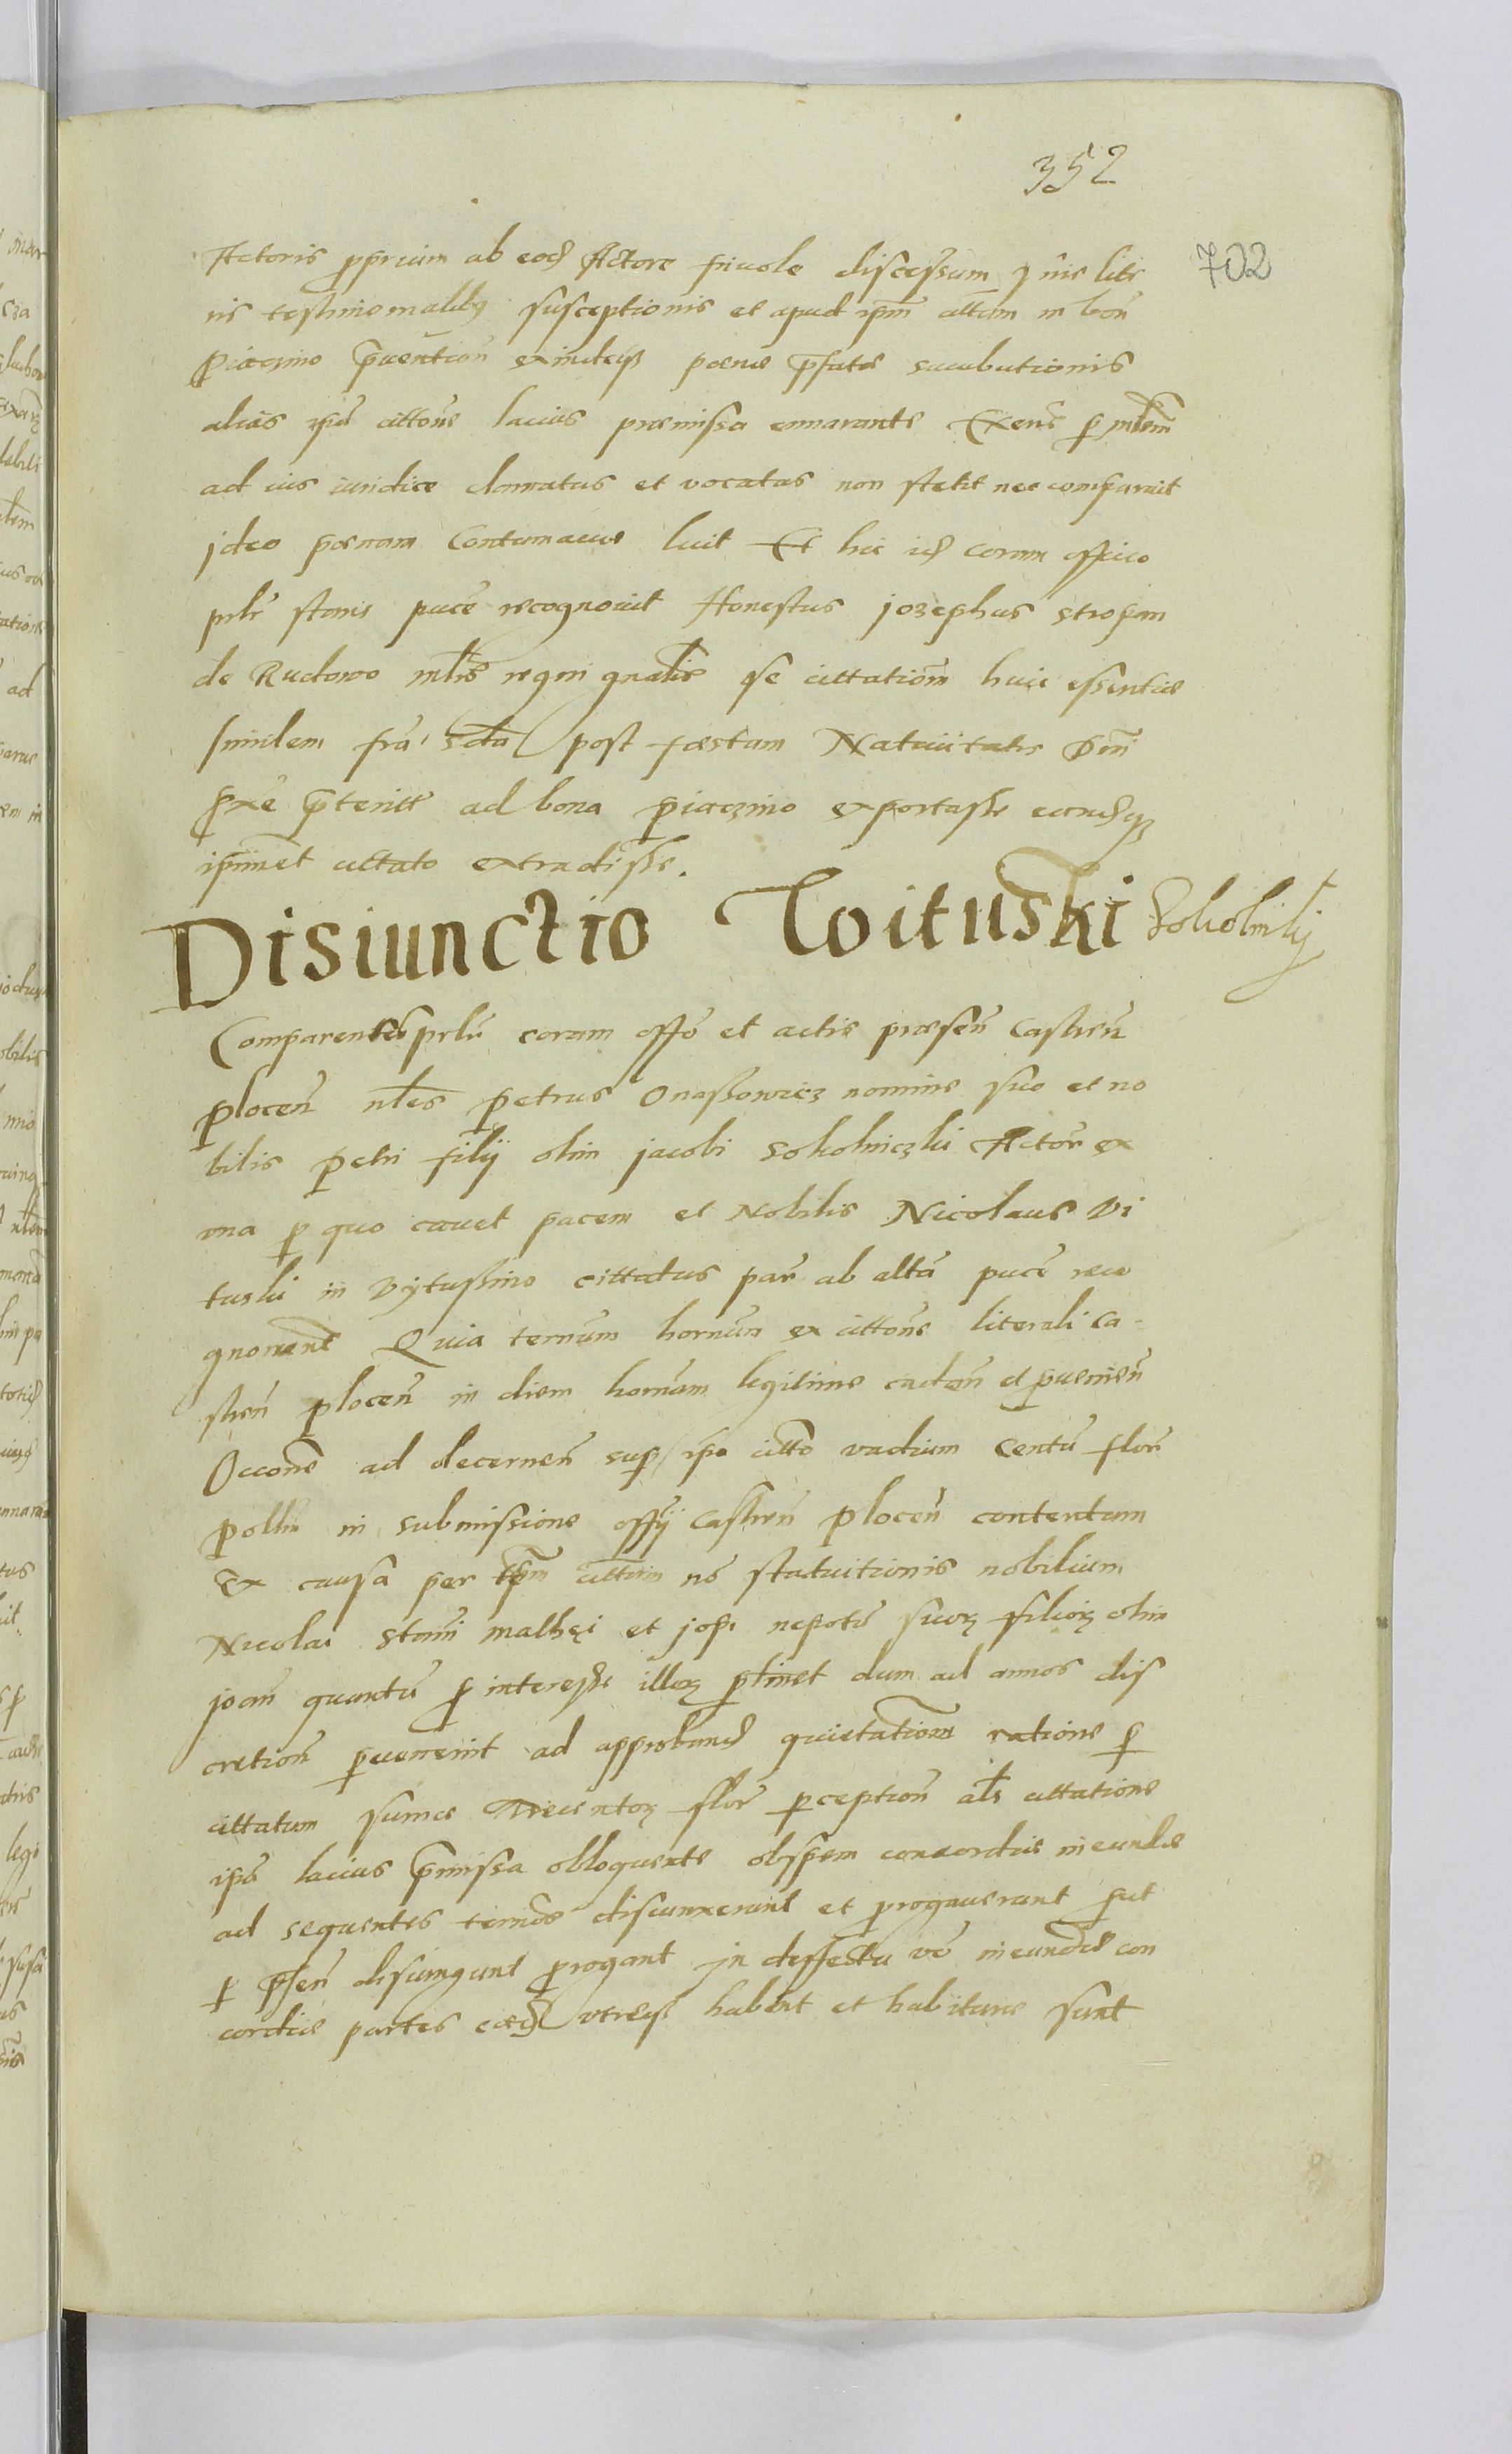 352
702
Actoris proprium ab eod Actore friuole discessum his lite
ris testimonialibus susceptionis et apud ipm attum in bon
Piaczino pvention exindeqz poene pfate sucubutionis
alias ipa cittone lacius praemissa ennarante Exens p mlem
ad ius iuridice clamatus et vocatus non stetit nec comparuit
jdeo poenam Contumacie luit Et hic id coram officio
psonalr stans puce recognovit Honestus jozephus stropan
de Rudowo mlis regni gnalis se cittationem huic essentie
similem fra scda post foestum Natiuitatis Dni
pxe pterite ad bona piaczino exportasse eandqz
ipimet cittato extradisse.
Disiunctio Woituski Sokolniczkij
Comparentes psonlr coram offo et actis praesen Castren
plocen nbles petrus Onassowicz nomine suo et no
bilis petri filij olim jacobi sokolniczki Actor ex
vna p quo cauet pacem et Nobilis Nicolaus Vi
tuski in Vijtussino cittatus par ab altera puce reco
gnouerunt Quia ternum hornum ex cittone literali Ca-
stren plocen in diem hornam legitime caden et pueniein
Occone ad decernen sup ipo citto vadium centu flor
pollin in submissione offij Castren plocen contentum
Ex causa per ipm cittum ne statuitionis nobilium
Nicolai stani mathei et jop nepotu suorz filiorz olim
joan quantu p interesse illorz ptinet dum ad annos dis
cretion pueneint ad approband quietationem ratione p
cittatum sumae Trecentorz flor pception als cittatione
ipa lacius pmissa olloquente obspem concordie ineunde
ad sequentes ternos disiunxerunt et progauerunt put
p psen disiungunt progant jn deffectu vo ineunde con
cordie partes eaed vtreqz habent et habiture sunt